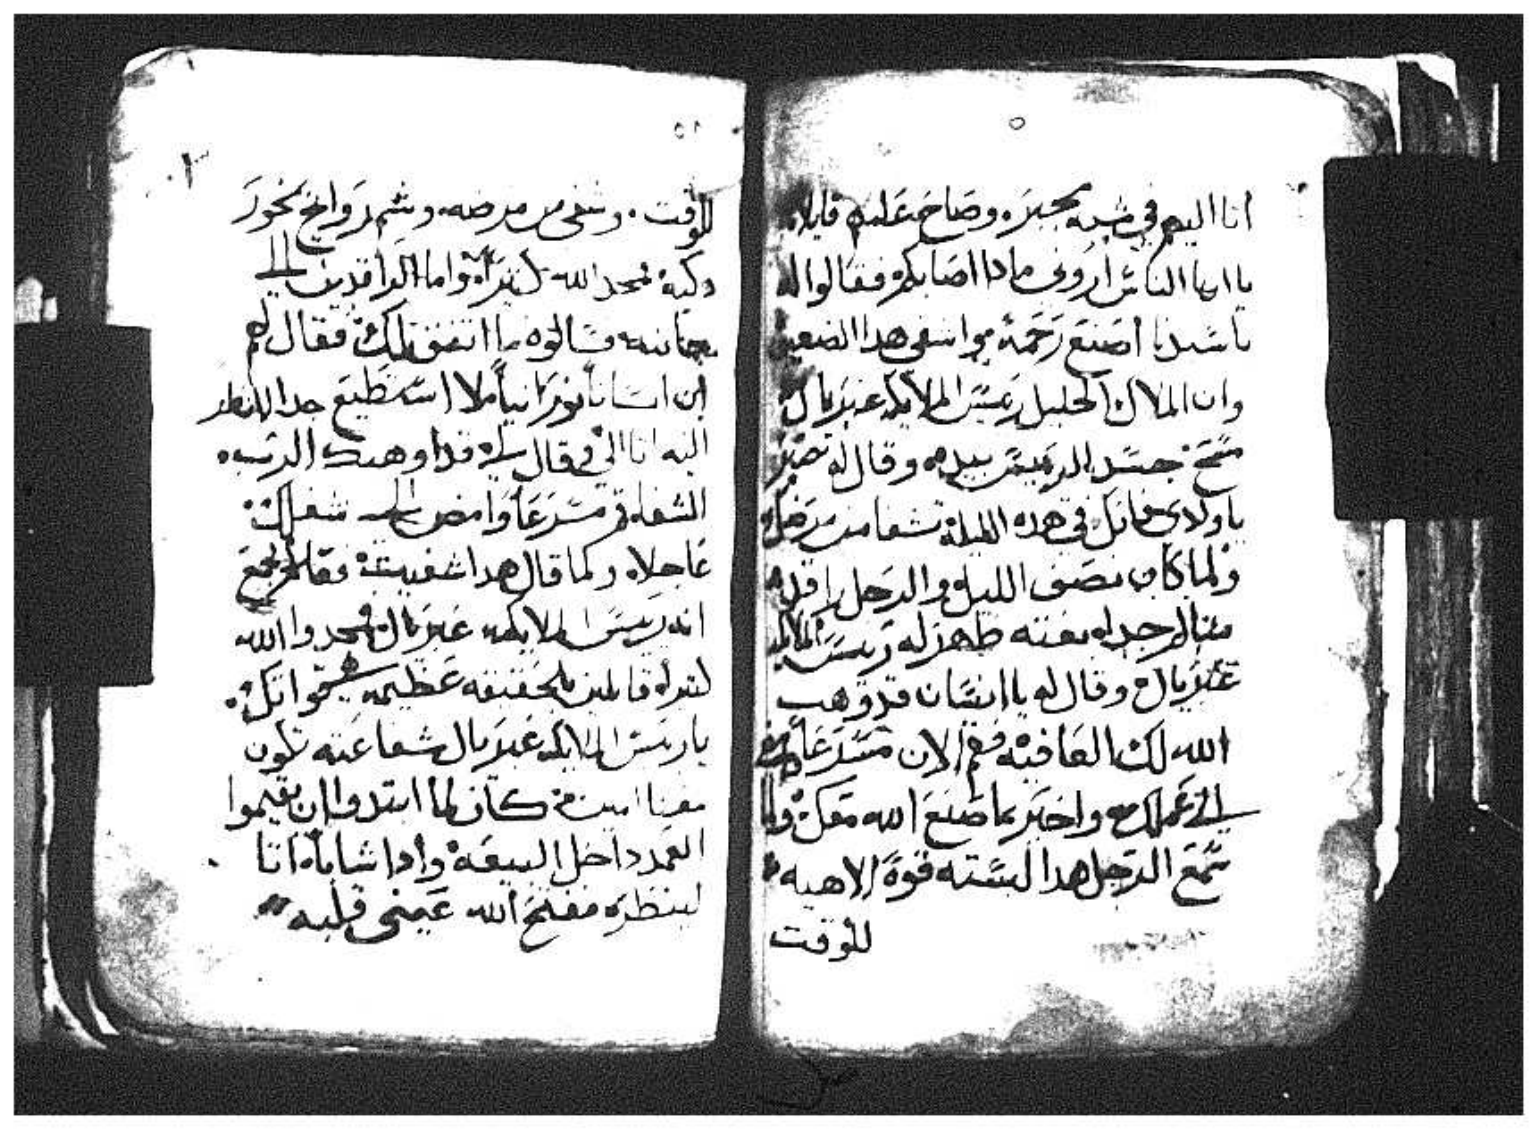 انا اليهم في شبه مجبر. وصاح عليهم قايلا
يا ايها الناس اروني مادا اصابكم فقالوا له
يا سيدنا اصنع رحمة واشفي هدا الضعيف
وان الملاك الجليل رييس الملايكه غبريال
مسح جسد الرجل بيده وقال له
يا ولدي فانك في هده الليلة تشفا من مرضك
ولما كان نصف الليل والرجل راقد
متالم جدا بغته ظهر له رييس الملايكه
غبريال وقال له يا انسان قد وهب
الله لك العافيه فقم الان مسرعا امض
الى عملك واخبر بما صنع الله معك ولما
سمع الرجل هدا لبسته قوة الاهيه
للوقت
٥١
للوقت. وشفي من مرضه. وشم روايح بخور
دكيه فمجد الله كتيرا واما الراقدين الى
جانبه فسالوه ما اتفق لك فقال لهم
ان انسانا نورانيا لا استطيع جدا للنظر
اليه اتا الي قال لي قد اوهبك الرب
الشفا قم مسرعا وامض الى شغلك
عاجلا وكما قال هدا شفيت فقال الجمع
انه رييس الملايكه غبريال فمجدوا الله
كتيرا قايلين بالحقيقه عظيمه هي قواتك
يا رييس الملايكه غبريال شفاعته تكون
معنا امين كان لما ابتدوا ان يقيموا
العمد داخل البيعة وادا شابا اتا
لينظره ففتح الله عيني قلبه